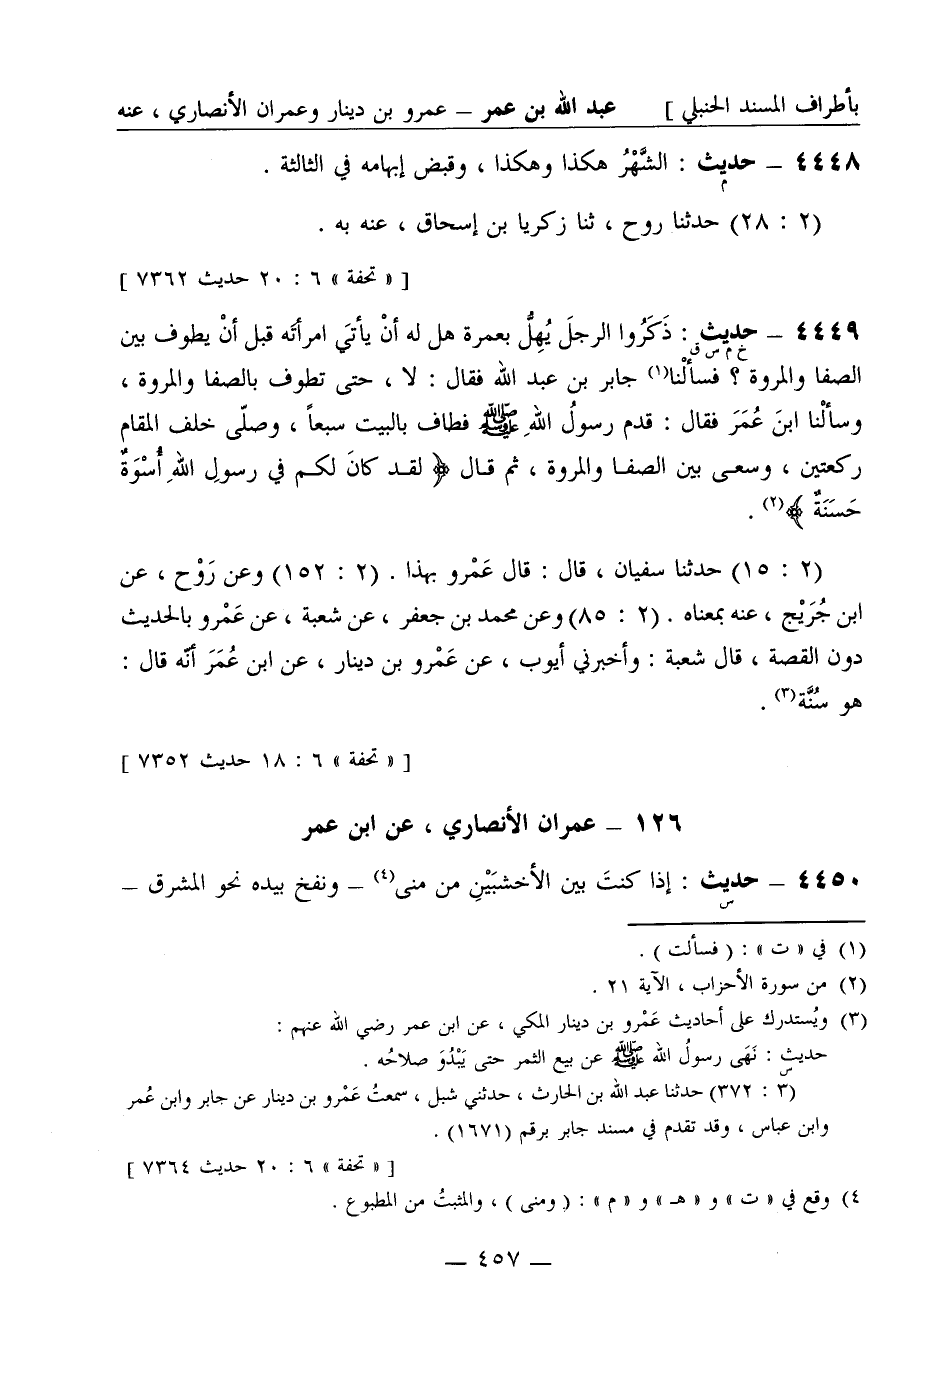 بأطراف المسند الحنبلي ] عبد الله بن عمر – عمرو بن دينار وعمران الأنصاري ، عنه
٤٤٤٨ – حديث : الشَّهْرُ هكذا وهكذا ، وقبض إبهامه في الثالثة .
م
(٢ : ٢٨) حدثنا روح ، ثنا زكريا بن إسحاق ، عنه به .
[ « تحفة » ٦ : ٢٠ حديث ٧٣٦٢ ]
٤٤٤٩ – حديث : ذَكَرُوا الرجلَ يُهِلُّ بعمرة هل له أنْ يأتيَ امرأتَه قبل أنْ يطوف بين
خ م س ق
الصفا والمروة ؟ فسألْنا(١) جابر بن عبد الله فقال : لا ، حتى تطوف بالصفا والمروة ،
وسألْنا ابنَ عُمَرَ فقال : قدم رسولُ اللهِ ﷺ فطاف بالبيت سبعاً ، وصلّى خلف المقام
ركعتين ، وسعى بين الصفا والمروة ، ثم قال ﴿ لقد كانَ لكم في رسولِ اللهِ أُسْوَةٌ
حَسَنَةٌ ﴾(٢) .
(٢ : ١٥) حدثنا سفيان ، قال : قال عَمْرو بهذا . (٢ : ١٥٢) وعن رَوْح ، عن
ابن جُرَيْج ، عنه بمعناه . (٢ : ٨٥) وعن محمد بن جعفر ، عن شعبة ، عن عَمْرو بالحديث
دون القصة ، قال شعبة : وأخبرني أيوب ، عن عَمْرو بن دينار ، عن ابن عُمَرَ أنّه قال :
هو سُنَّة(٣) .
[ « تحفة » ٦ : ١٨ حديث ٧٣٥٢ ]
١٢٦ – عمران الأنصاري ، عن ابن عمر
٤٤٥٠ – حديث : إذا كنتَ بين الأخشبَيْنِ من منى(٤) – ونفخ بيده نحو المشرق –
س
(١) في « ت » : ( فسألت ) .
(٢) من سورة الأحزاب ، الآية ٢١ .
(٣) ويُستدرك على أحاديث عَمْرو بن دينار المكي ، عن ابن عمر رضي الله عنهم :
حديث : نَهَى رسولُ الله ﷺ عن بيع الثمر حتى يَبْدُوَ صلاحُه .
س
(٣ : ٣٧٢) حدثنا عبد الله بن الحارث ، حدثني شبل ، سمعتُ عَمْرو بن دينار عن جابر وابن عُمر
وابن عباس ، وقد تقدم في مسند جابر برقم (١٦٧١) .
[ « تحفة » ٦ : ٢٠ حديث ٧٣٦٤ ]
٤) وقع في « ت » و « هـ » و « م » : ( ومنى ) ، والمثبتُ من المطبوع .
– ٤٥٧ –